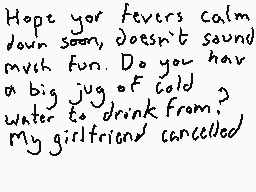 Hope yor fevers calm
down soon, doesn't sound
much fun. Do you hav
a big jug of cold
water to drink from?
My girlfriend cancelled